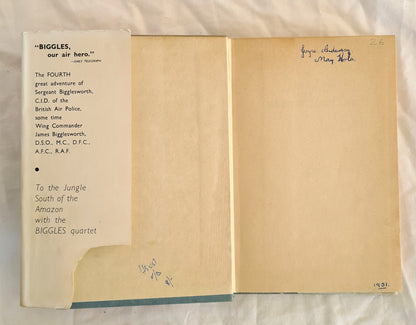 "BIGGLES,
our air hero."
—DAILY TELEGRAPH
The FOURTH
great adventure of
Sergeant Bigglesworth,
C.I.D. of the
British Air Police,
some time
Wing Commander
James Bigglesworth,
D.S.O., M.C., D.F.C.,
A.F.C., R.A.F.
•
To the Jungle
South of the
Amazon
with the
BIGGLES quartet
26
May
1951.